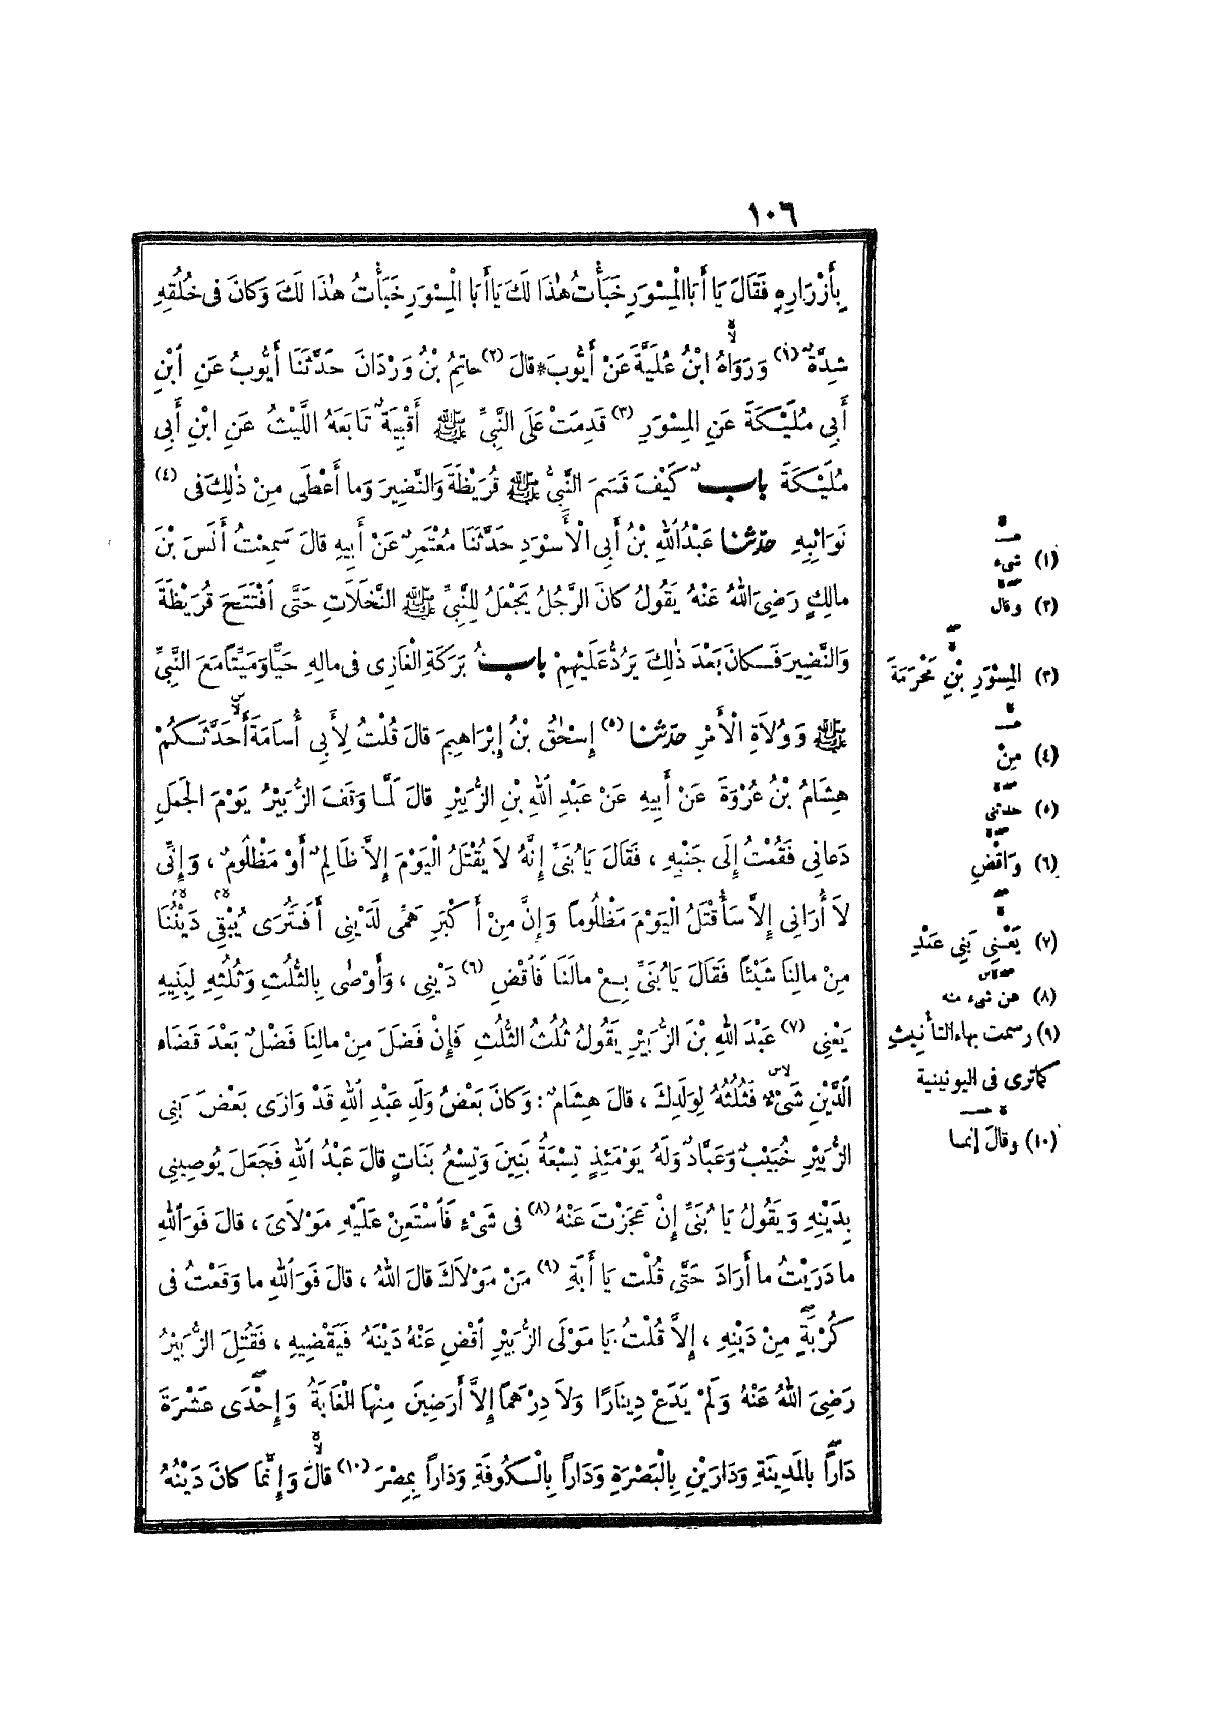 ١٠٦
بِأَزْرَارِهِ فَقَالَ يَا أَبَا الْمِسْوَرِ خَبَأْتُ هٰذَا لَكَ يَا أَبَا الْمِسْوَرِ خَبَأْتُ هٰذَا لَكَ وَكَانَ فِي خُلُقِهِ
شِدَّةٌ (١) وَرَوَاهُ ابْنُ عُلَيَّةَ عَنْ أَيُّوبَ * قَالَ (٢) حَاتِمُ بْنُ وَرْدَانَ حَدَّثَنَا أَيُّوبُ عَنِ ابْنِ
أَبِي مُلَيْكَةَ عَنِ الْمِسْوَرِ (٣) قَدِمَتْ عَلَى النَّبِيِّ ﷺ أَقْبِيَةٌ تَابَعَهُ اللَّيْثُ عَنِ ابْنِ أَبِي
مُلَيْكَةَ بابٌ كَيْفَ قَسَمَ النَّبِيُّ ﷺ قُرَيْظَةَ وَالنَّضِيرَ وَمَا أَعْطَى مِنْ ذٰلِكَ فِي (٤)
نَوَائِبِهِ حدّثنا عَبْدُ اللهِ بْنُ أَبِي الْأَسْوَدِ حَدَّثَنَا مُعْتَمِرٌ عَنْ أَبِيهِ قَالَ سَمِعْتُ أَنَسَ بْنَ
مَالِكٍ رَضِيَ اللهُ عَنْهُ يَقُولُ كَانَ الرَّجُلُ يَجْعَلُ لِلنَّبِيِّ ﷺ النَّخَلَاتِ حَتَّى افْتَتَحَ قُرَيْظَةَ
وَالنَّضِيرَ فَكَانَ بَعْدَ ذٰلِكَ يَرُدُّ عَلَيْهِمْ بابُ بَرَكَةِ الْغَازِي فِي مَالِهِ حَيًّا وَمَيِّتًا مَعَ النَّبِيِّ
ﷺ وَوُلَاةِ الْأَمْرِ حدّثنا (٥) إِسْحٰقُ بْنُ إِبْرَاهِيمَ قَالَ قُلْتُ لِأَبِي أُسَامَةَ أَحَدَّثَكُمْ
هِشَامُ بْنُ عُرْوَةَ عَنْ أَبِيهِ عَنْ عَبْدِ اللهِ بْنِ الزُّبَيْرِ قَالَ لَمَّا وَقَفَ الزُّبَيْرُ يَوْمَ الْجَمَلِ
دَعَانِي فَقُمْتُ إِلَى جَنْبِهِ ، فَقَالَ يَا بُنَيِّ إِنَّهُ لَا يُقْتَلُ الْيَوْمَ إِلَّا ظَالِمٌ أَوْ مَظْلُومٌ ، وَإِنِّي
لَا أُرَانِي إِلَّا سَأُقْتَلُ الْيَوْمَ مَظْلُومًا وَإِنَّ مِنْ أَكْبَرِ هَمِّي لَدَيْنِي أَفَتُرَى يُبْقِي دَيْنُنَا
مِنْ مَالِنَا شَيْئًا فَقَالَ يَا بُنَيِّ بِعْ مَالَنَا فَاقْضِ (٦) دَيْنِي ، وَأَوْصَى بِالثُّلُثِ وَثُلُثِهِ لِبَنِيهِ
يَعْنِي (٧) عَبْدَ اللهِ بْنَ الزُّبَيْرِ يَقُولُ ثُلُثُ الثُّلُثِ فَإِنْ فَضَلَ مِنْ مَالِنَا فَضْلٌ بَعْدَ قَضَاءِ
الدَّيْنِ شَيْءٌ فَثُلُثُهُ لِوَلَدِكَ ، قَالَ هِشَامٌ : وَكَانَ بَعْضُ وَلَدِ عَبْدِ اللهِ قَدْ وَازَى بَعْضَ بَنِي
الزُّبَيْرِ خُبَيْبٌ وَعَبَّادٌ وَلَهُ يَوْمَئِذٍ تِسْعَةُ بَنِينَ وَتِسْعُ بَنَاتٍ قَالَ عَبْدُ اللهِ فَجَعَلَ يُوصِينِي
بِدَيْنِهِ وَيَقُولُ يَا بُنَيِّ إِنْ عَجَزْتَ عَنْهُ (٨) فِي شَيْءٍ فَاسْتَعِنْ عَلَيْهِ مَوْلَايَ ، قَالَ فَوَاللهِ
مَا دَرَيْتُ مَا أَرَادَ حَتَّى قُلْتُ يَا أَبَةِ (٩) مَنْ مَوْلَاكَ قَالَ اللهُ ، قَالَ فَوَاللهِ مَا وَقَعْتُ فِي
كُرْبَةٍ مِنْ دَيْنِهِ ، إِلَّا قُلْتُ يَا مَوْلَى الزُّبَيْرِ اقْضِ عَنْهُ دَيْنَهُ فَيَقْضِيهِ ، فَقُتِلَ الزُّبَيْرُ
رَضِيَ اللهُ عَنْهُ وَلَمْ يَدَعْ دِينَارًا وَلَا دِرْهَمًا إِلَّا أَرَضِينَ مِنْهَا الْغَابَةُ وَإِحْدَى عَشْرَةَ
دَارًا بِالْمَدِينَةِ وَدَارَيْنِ بِالْبَصْرَةِ وَدَارًا بِالْكُوفَةِ وَدَارًا بِمِصْرَ (١٠) قَالَ وَإِنَّمَا كَانَ دَيْنُهُ
(١) شيء
(٢) وقال
(٣) الْمِسْوَرِ بْنِ مَخْرَمَةَ
(٤) مِنْ
(٥) حدثني
(٦) وَاقْضِ
(٧) يَعْنِي بَنِي عَبْدِ
(٨) عن شيء منه
(٩) رسمت بهاء التأنيث
كما ترى في اليونينية
(١٠) وقال إنما